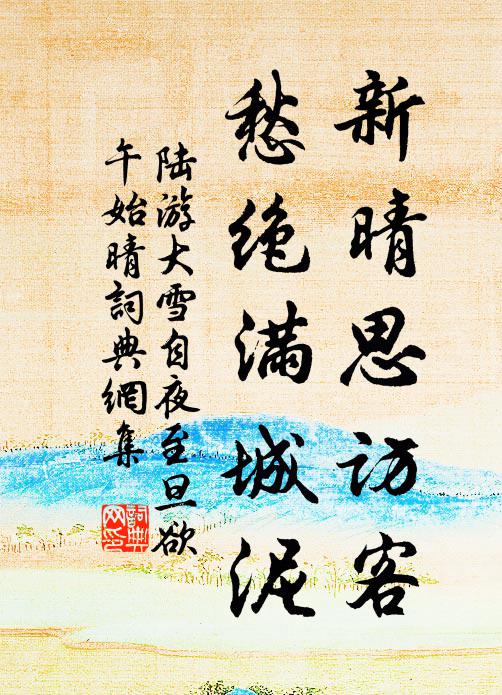 新晴思访客
愁绝满城泥
陆游大雪自夜至旦欲
午始晴詞典網集